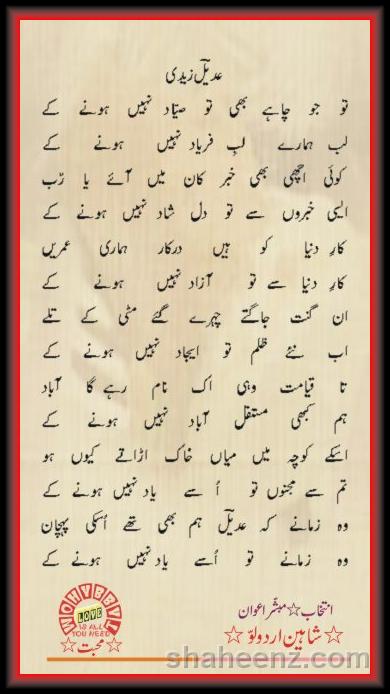 عدیلؔ زیدی
تو جو چاہے بھی تو صیّاد نہیں ہونے کے
لب ہمارے لبِ فریاد نہیں ہونے کے
کوئی اچھی بھی خبر کان میں آئے یا رَب
ایسی خبروں سے تو دل شاد نہیں ہونے کے
کارِ دنیا کو ہیں درکار ہماری عمریں
کارِ دنیا سے تو آزاد نہیں ہونے کے
ان گنت جاگتے چہرے گئے مٹی کے تلے
اب نئے ظلم تو ایجاد نہیں ہونے کے
تا قیامت وہی اک نام رہے گا آباد
ہم کبھی مستقل آباد نہیں ہونے کے
اسکے کوچہ میں میاں خاک اڑاتے کیوں ہو
تم سے مجنوں تو اُسے یاد نہیں ہونے کے
وہ زمانے کہ عدیلؔ ہم بھی تھے اُسکی پہچان
وہ زمانے تو اُسے یاد نہیں ہونے کے
انتخاب☆مبشّر اعوان
☆شاہین اردولوّ☆
LOVE
IS ALL
YOU NEED
☆محبت☆
shaheenz.com